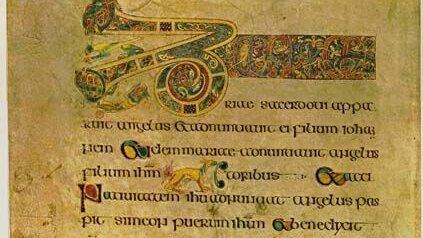 riae sacerdoti appa
ruit angelus & adnuntiauit ei filium ioha
nem & eidem mariae adnuntians angelus
filium ihm toribus & acci
Natiuitatem ihu adnuntiat angelus pas
pit simeon puerum ihm & benedicit